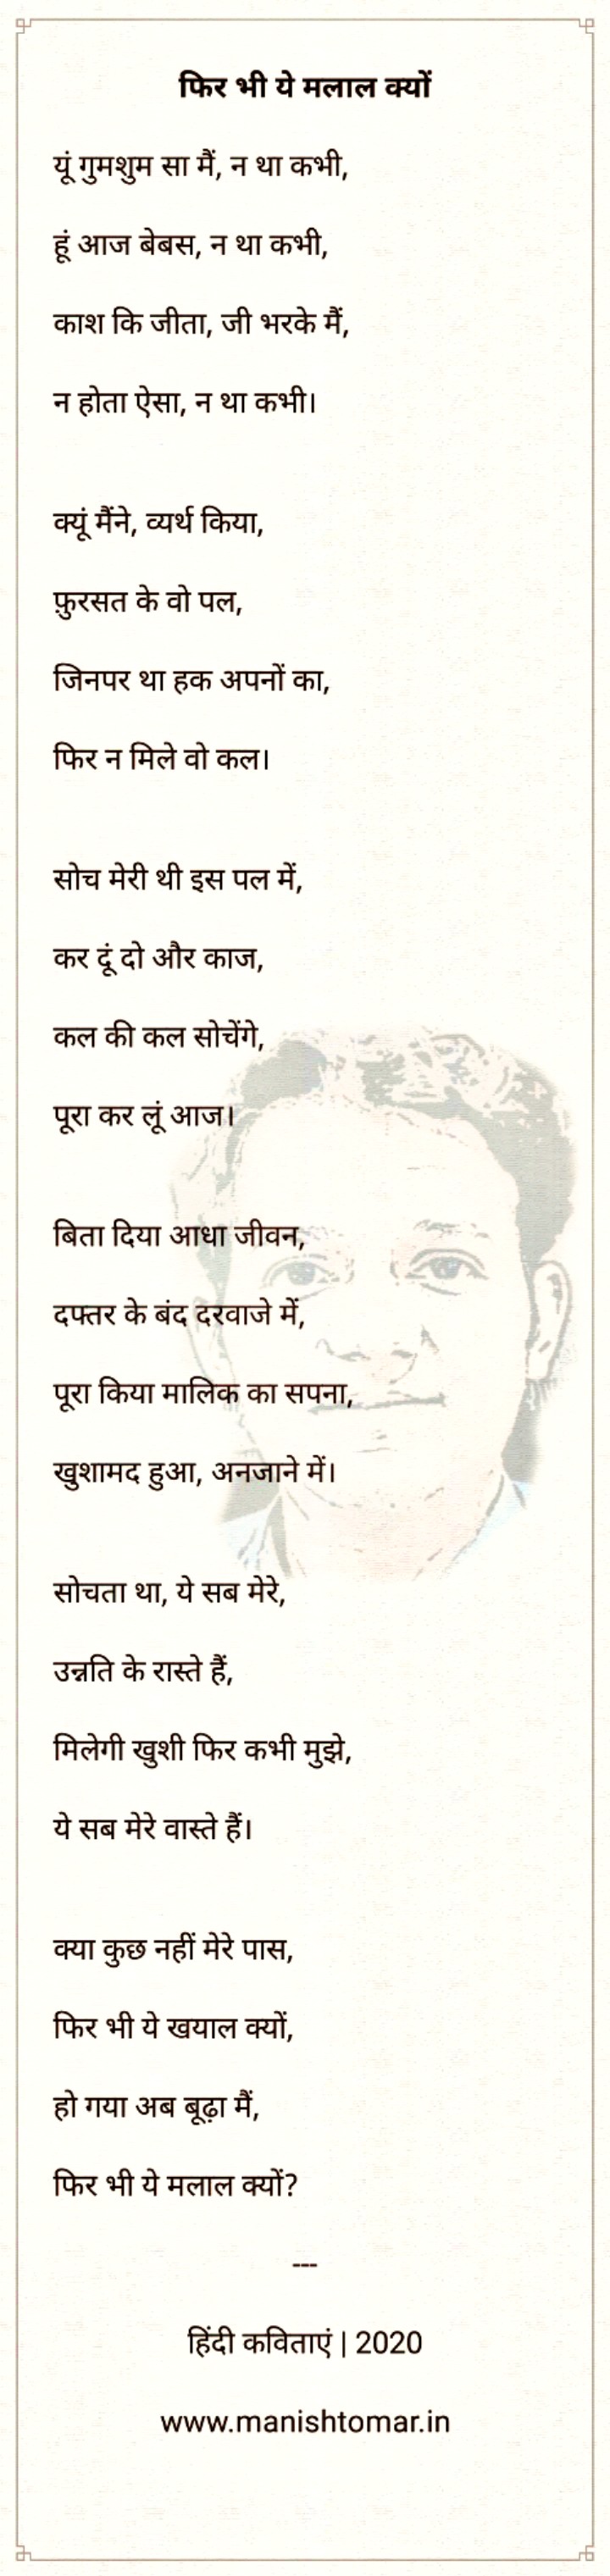 फिर भी ये मलाल क्यों
यूं गुमशुम सा मैं, न था कभी,
हूं आज बेबस, न था कभी,
काश कि जीता, जी भरके मैं,
न होता ऐसा, न था कभी।
क्यूं मैंने, व्यर्थ किया,
फ़ुरसत के वो पल,
जिनपर था हक अपनों का,
फिर न मिले वो कल।
सोच मेरी थी इस पल में,
कर दूं दो और काज,
कल की कल सोचेंगे,
पूरा कर लूं आज।
बिता दिया आधा जीवन,
दफ्तर के बंद दरवाजे में,
पूरा किया मालिक का सपना,
खुशामद हुआ, अनजाने में।
सोचता था, ये सब मेरे,
उन्नति के रास्ते हैं,
मिलेगी खुशी फिर कभी मुझे,
ये सब मेरे वास्ते हैं।
क्या कुछ नहीं मेरे पास,
फिर भी ये खयाल क्यों,
हो गया अब बूढ़ा मैं,
फिर भी ये मलाल क्यों?
---
हिंदी कविताएं | 2020
www.manishtomar.in